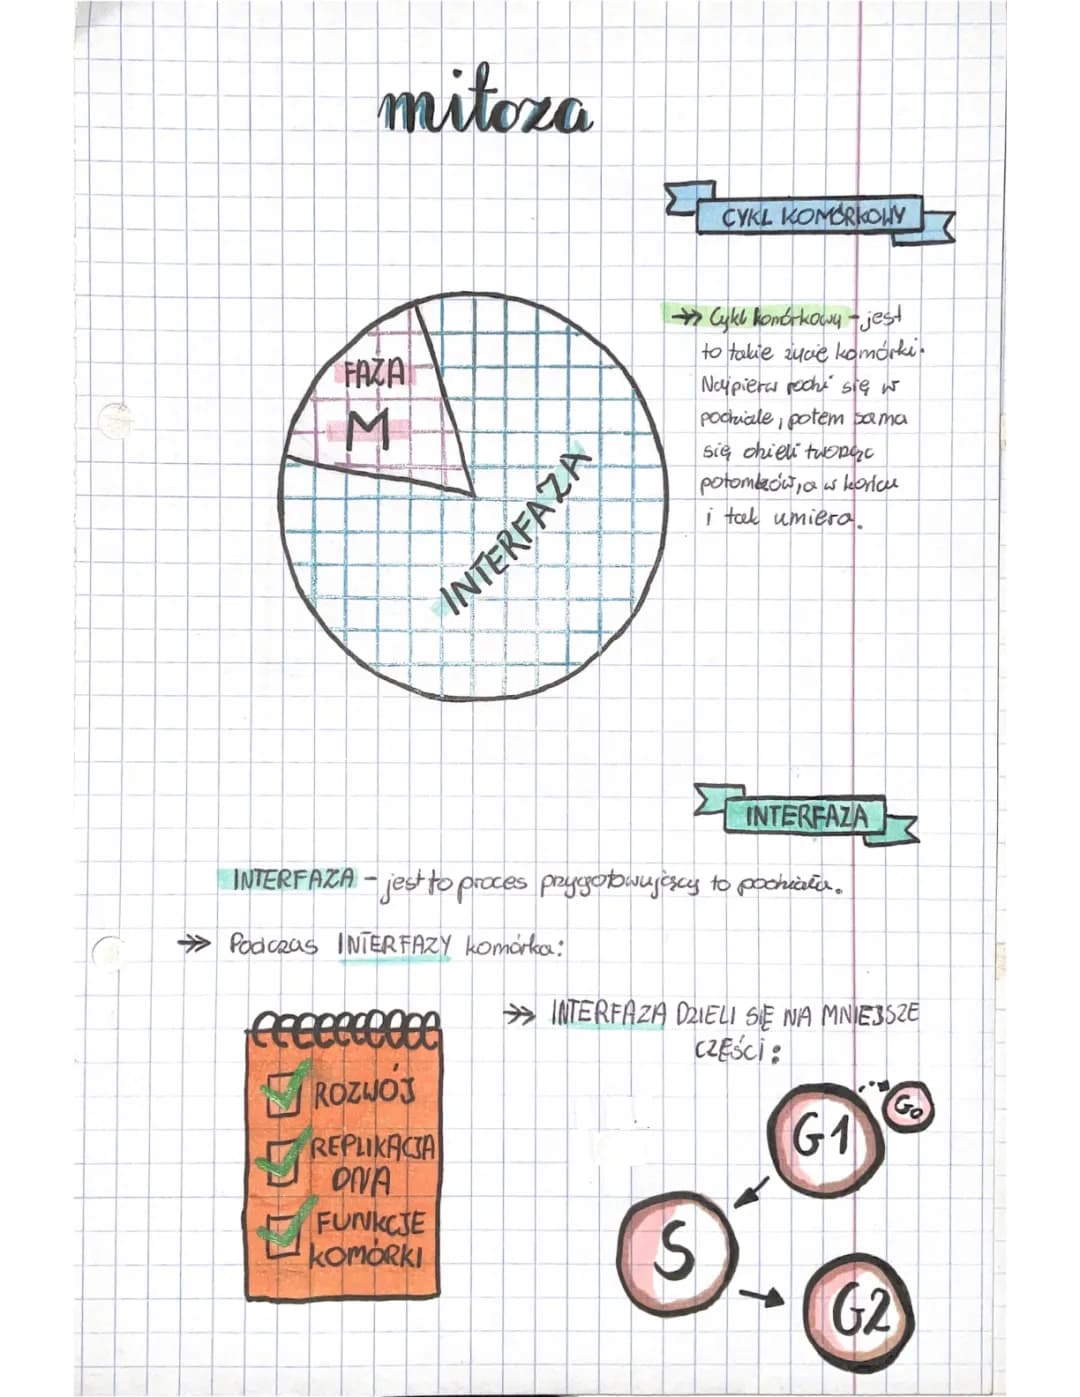 mitoza
CYKL KOMÓRKOWY
FAZA
M
INTERFAZA
→» Cykl komórkowy - jest
to takie życie komórki.
Najpierw rodzi się w
podziale, potem sama
się dzieli tworząc
potomków, a w końcu
i tak umiera.
INTERFAZA
INTERFAZA - jest to proces przygotowujący to podziału.
→» Podczas INTERFAZY komórka:
→» INTERFAZA DZIELI SIĘ NA MNIEJSZE
CZĘŚCI:
ROZWÓJ
REPLIKACJA
DNA
FUNKCJE
KOMÓRKI
G1
G0
S
G2